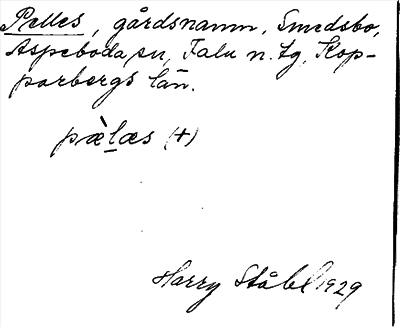 Pelles, gårdsnamn, Smedsbo,
Aspeboda sn, Falu n. tg, Kop-
parbergs län.
pæ̀l̲æs (+)
Harry Ståhl 1929